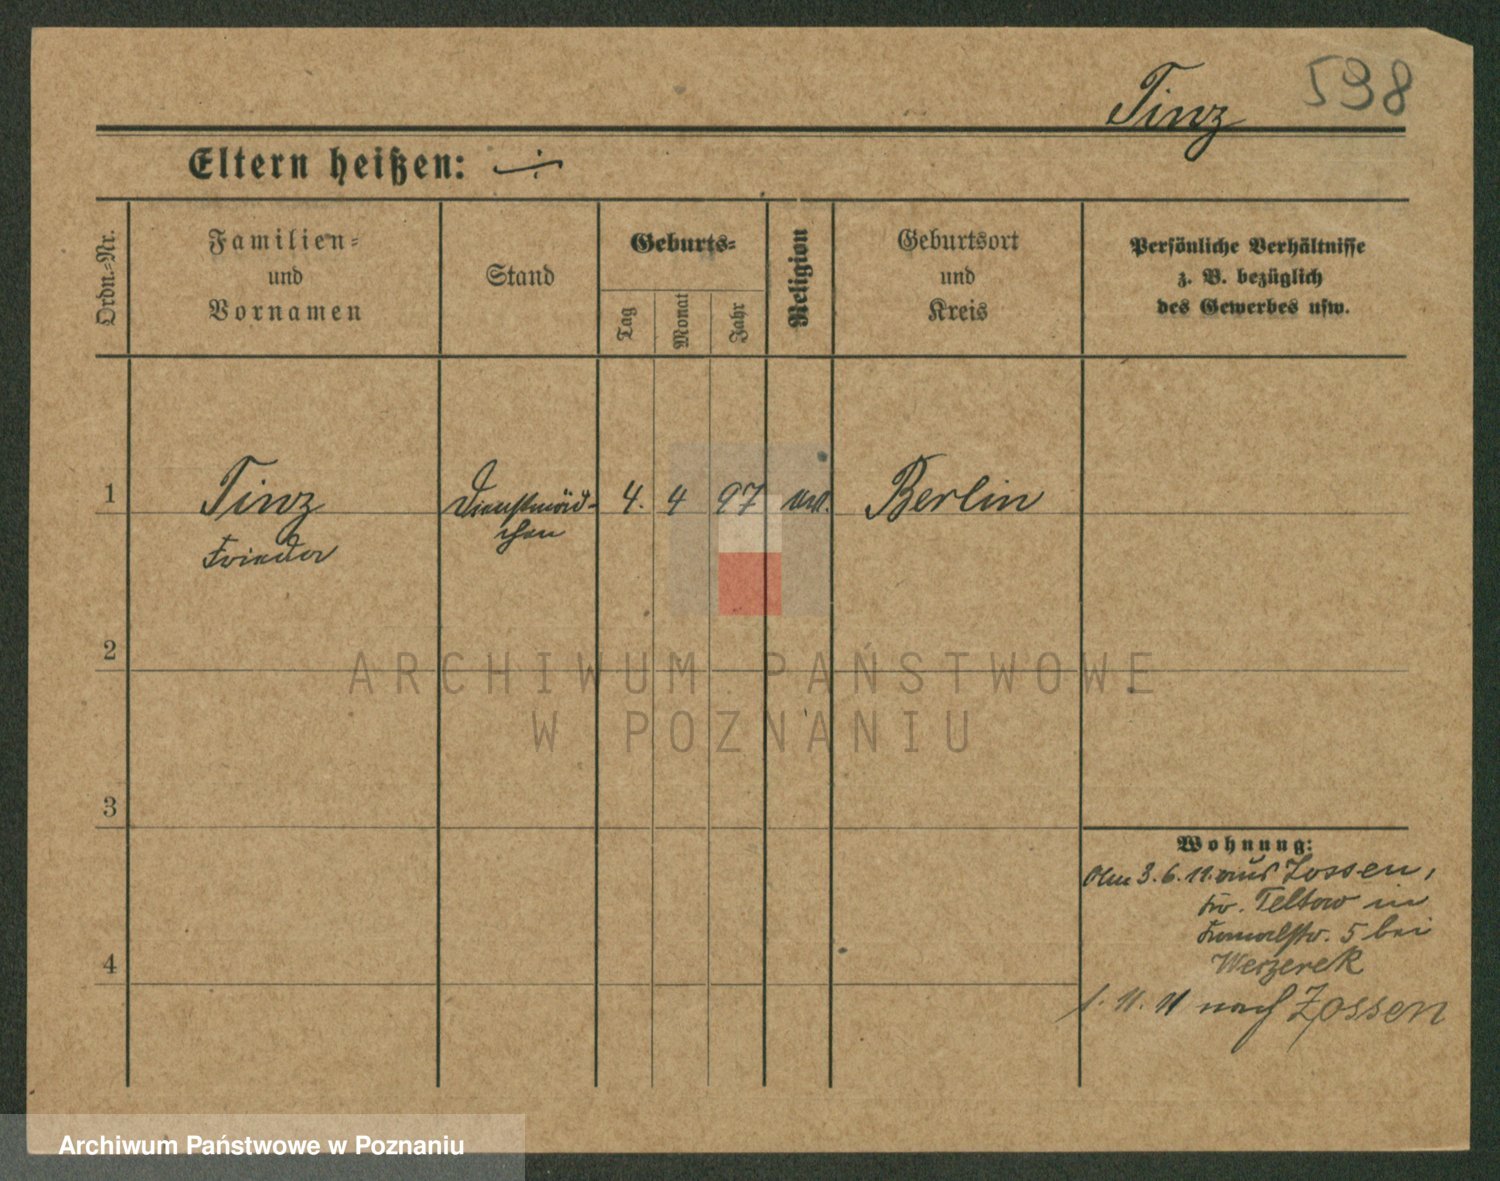 Tinz 598
Eltern heißen: ÷
Ordn.-Nr.
Familien-
und
Vornamen
Stand
Geburts-
Tag
Monat
Jahr
Religion
Geburtsort
und
Kreis
Persönliche Verhältnisse
z. B. bezüglich
des Gewerbes usw.
1 Tinz Dienstmäd- 4. 4 97 Berlin
chen
2
3
4
Wohnung:
3.6.11. aus Zossen,
Kr. Teltow in
5 bei
Weizerek
1. 11. 11 nach Zossen
ARCHIWUM PAŃSTWOWE
W POZNANIU
Archiwum Państwowe w Poznaniu